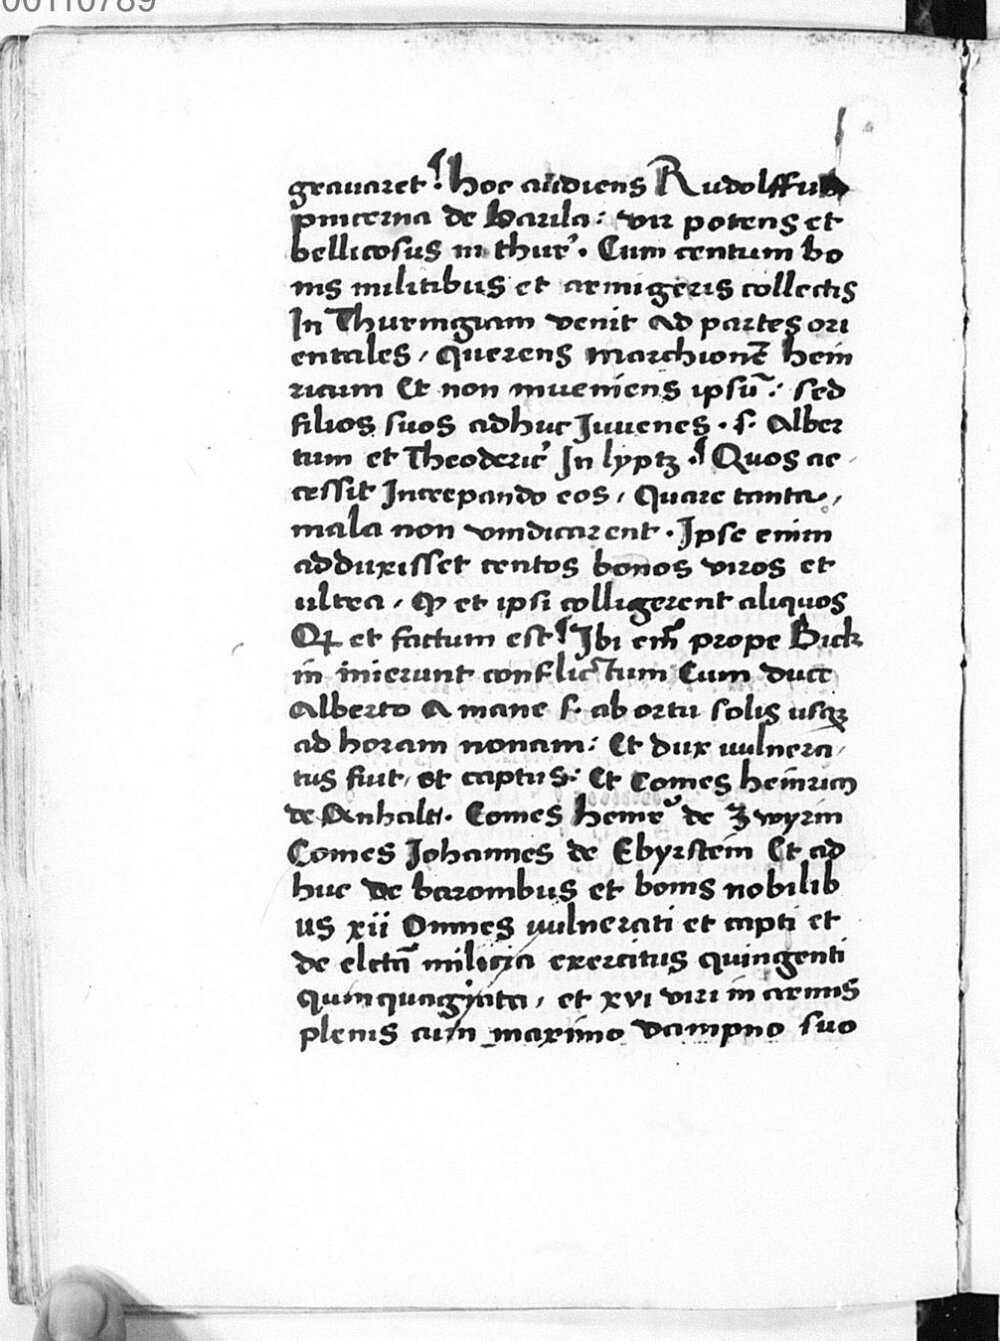 00110789
grauaret. hoc audiens Rudolffus
pincerna de varila: vir potens et
bellicosus in thur'. Cum centum bo
nis militibus et armigeris collectis
In Thuringiam venit ad partes ori
entales, querens marchionē hein
ricum Et non inueniens ipsū: sed
filios suos adhuc Juuenes. s. Alber
tum et Theoderic' In lyptz. Quos ac
cessit Increpando eos, Quare tanta,
mala non vindicarent. Ipse enim
adduxisset centos bonos viros et
ultra, et ipsi colligerent aliquos
et factum est Ibi em̄ prope Bick
in inierunt conflictum Cum duce
Alberto A mane s. ab ortu solis usq3
ad horam nonam: Et dux uulnera,
tus fuit, et captus: Et Comes heinricq
de Anhalt. Comes heinr' de Zwyrin
Comes Johannes de Ebyrstein Et ad
huc de baronibus et bonis nobilib
us xii Omnes uulnerati et capti et
de electa milicia exercitus quingenti
quinquaginta, et xvi viri in armis
plenis cum maximo dampno suo